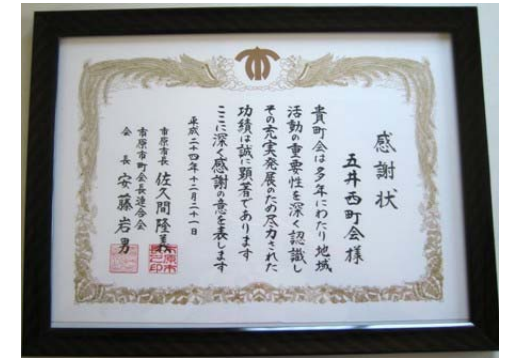 感謝状
五井西町会様
貴町会は多年にわたり地域
活動の重要性を深く認識し
その充実発展のため尽力された
功績は誠に顕著であります
ここに深く感謝の意を表します
平成二十四年十二月二十一日
市原市長 佐久間隆義
市原市町会長連合会
会長 安藤岩男